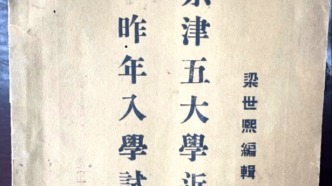 梁世熙編輯
京津五大學近
昨年入學試